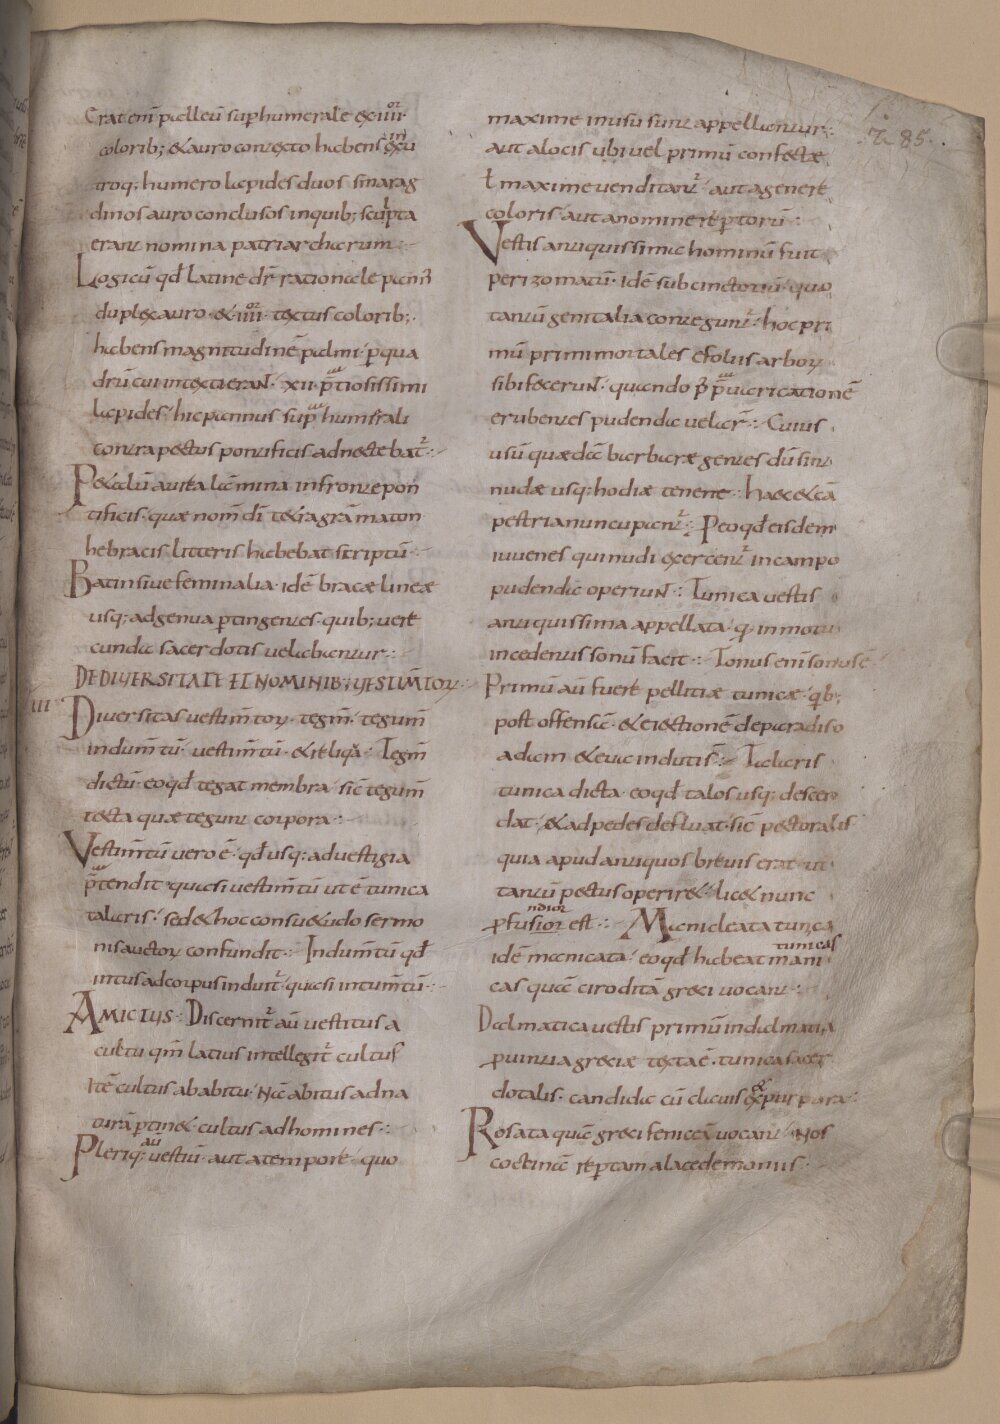 Erat eni̅ palleu̅ sup humerale ex iiii or
colorib; & auro contexto habens ex in u
troq; humero lapides duos smarag
dinos auro conclusos in quib; sculpta
erant nomina patriarcharum
Logicu̅ qd̅ latine dr̅ rationale pann
duplex auro · & iiii or · textus colorib;
habens magnitudine̅ palmi · p qua
dru̅ cui intexti eraNt · xii · p̅tiosissimi
lapides · hic pannus sup humerali
contra pectus pontificis adnectebat̅
Petalu̅ aurea lamina in fronte pon
tificis · quae nom̅ di̅ tetragra̅maton
hebraeis litteris habebat scriptu̅
Batin sive feminalia · ide̅ bracae lineae
usq; ad genua ptingentes · quib; vere
cunda sacerdotis velabantur
DE DIVERSITATE ET NOMINIB; VESTIM̅TOR
III Diversitas vestim̅tor · tegm̅ · tegum̅
indum̅tu̅ · vestim̅tu̅ · & reliqa · Tegm̅
dictu̅ eo qd̅ tegat membra · sic̅ tegum̅
tecta quae tegunt corpora
Vestim̅tu̅ vero e̅ · qd̅ usq; ad vestigia
p̅tendit · quasi vestim̅tu̅ ut e̅ tunica
talaris · sed & hoc consuetudo sermo
nis auctor confundit · Indum̅tu̅ qd̅
intus ad corpus induit̅ · quasi intum̅tu̅
AMICTUS · Discernit̅ au̅ vestitus a
cultu qm̅ latius intellegit̅ cultus
Ite̅ cultus ab abitu · Na̅ abitus ad na
tura̅ ptinet · cultus ad homines
Pleriq; au̅ vestiu̅ · aut a tempore · quo
maxime in usu sunt appellantur
aut a locis ubi vel primu̅ confectae
ł maxime venditant̅ · aut a genere
coloris · aut a nomine reptoru̅
Vestis antiquissima hominu̅ fuit
perizomatu̅ · Ide̅ subcinctoriu̅ · quo
tantu̅ genitalia conteguntur · hoc pri
mu̅ primi mortales e foliis arbor
sibi feceruNt · quando p p̅varicatione̅
erubentes pudenda velar̅ · Cuius
usu̅ quaeda̅ barbarae gentes du̅ sint
nudae usq; hodiae tenent · haec & ca̅
pestria nuncupant̅ · P eo qd̅ eisdem
iuvenes qui nudi exercent̅ in campo
pudenda operiuNt · Tunica vestis
antiquissima appellata · q in motu
incedentis sonu̅ facit · Tonus eni̅ sonus e̅
Primu̅ au̅ fuere pelliciae tunicae · qb;
post offensa̅ · & eiectione̅ de paradiso
adam & eva induti s̅ · Talaris
tunica dicta · eo qd̅ talos usq; descen
dat · & ad pedes defluat · sic̅ pectoralis
quia apud antiquos brevis erat · ut
tantu̅ pectus operiret · licet nunc
pfusior ndior est · Manicleata tunica
ide̅ manicata · eo qd̅ habeat mani tunicas
cas qua̅ cirodita̅ greci vocant
Dalmatica vestis primu̅ in dalmatia
pvintia greciae texta e̅ · tunica sacer
dotalis · candida cu̅ clavis ex purpura
Rosata qua̅ greci fenicea̅ vocant · Nos
coctina̅ repta̅ a lacedemoniis
i
r 85